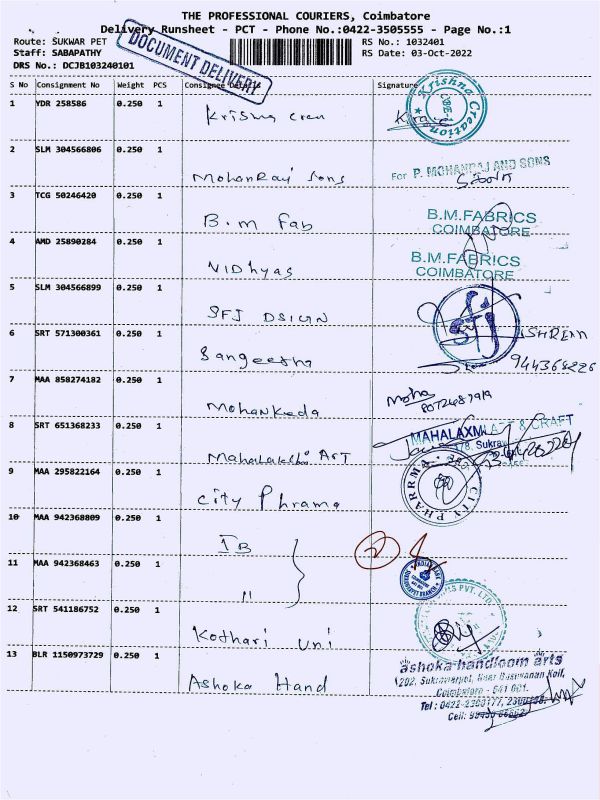 THE PROFESSIONAL COURIERS, Coimbatore
Delivery Runsheet - PCT - Phone No.:0422-3505555 - Page No.:1
Route: SUKWAR PET
RS No.: 1032401
Staff: SABAPATHY
RS Date: 03-Oct-2022
DRS No.: DCJB103240101
DOCUMENT DELIVERY
S No Consignment No Weight PCS Consignee Details Signature
1 YDR 258586 0.250 1 Krishna Crea
Krishna Creation
2 SLM 304566806 0.250 1 MohanRaj Sons
For P. MOHANRAJ AND SONS
3 TCG 50246420 0.250 1 B.m Fab
B.M.FABRICS
COIMBATORE
4 AMD 25890284 0.250 1 Vidhyas
B.M.FABRICS
COIMBATORE
5 SLM 304566899 0.250 1 SFJ DSIGN
sfj
6 SRT 571300361 0.250 1 Sangeetha
7 MAA 858274182 0.250 1 Mohankeda
Moha
8 SRT 651368233 0.250 1 Mahalakshi ART
MAHALAXMI & CRAFT
9 MAA 295822164 0.250 1 City Phrama
CITY PHARRMA
10 MAA 942368809 0.250 1 IB
2
11 MAA 942368463 0.250 1 "
INDIAN BANK
12 SRT 541186752 0.250 1 Kothari Uni
PVT. LTD.
13 BLR 1150973729 0.250 1 Ashoka Hand
ashoka handloom arts
292, Sukrawarpet, Near Baswanan Koil,
Coimbatore - 641 001.
Tel : 0422-2360177,
Cell: